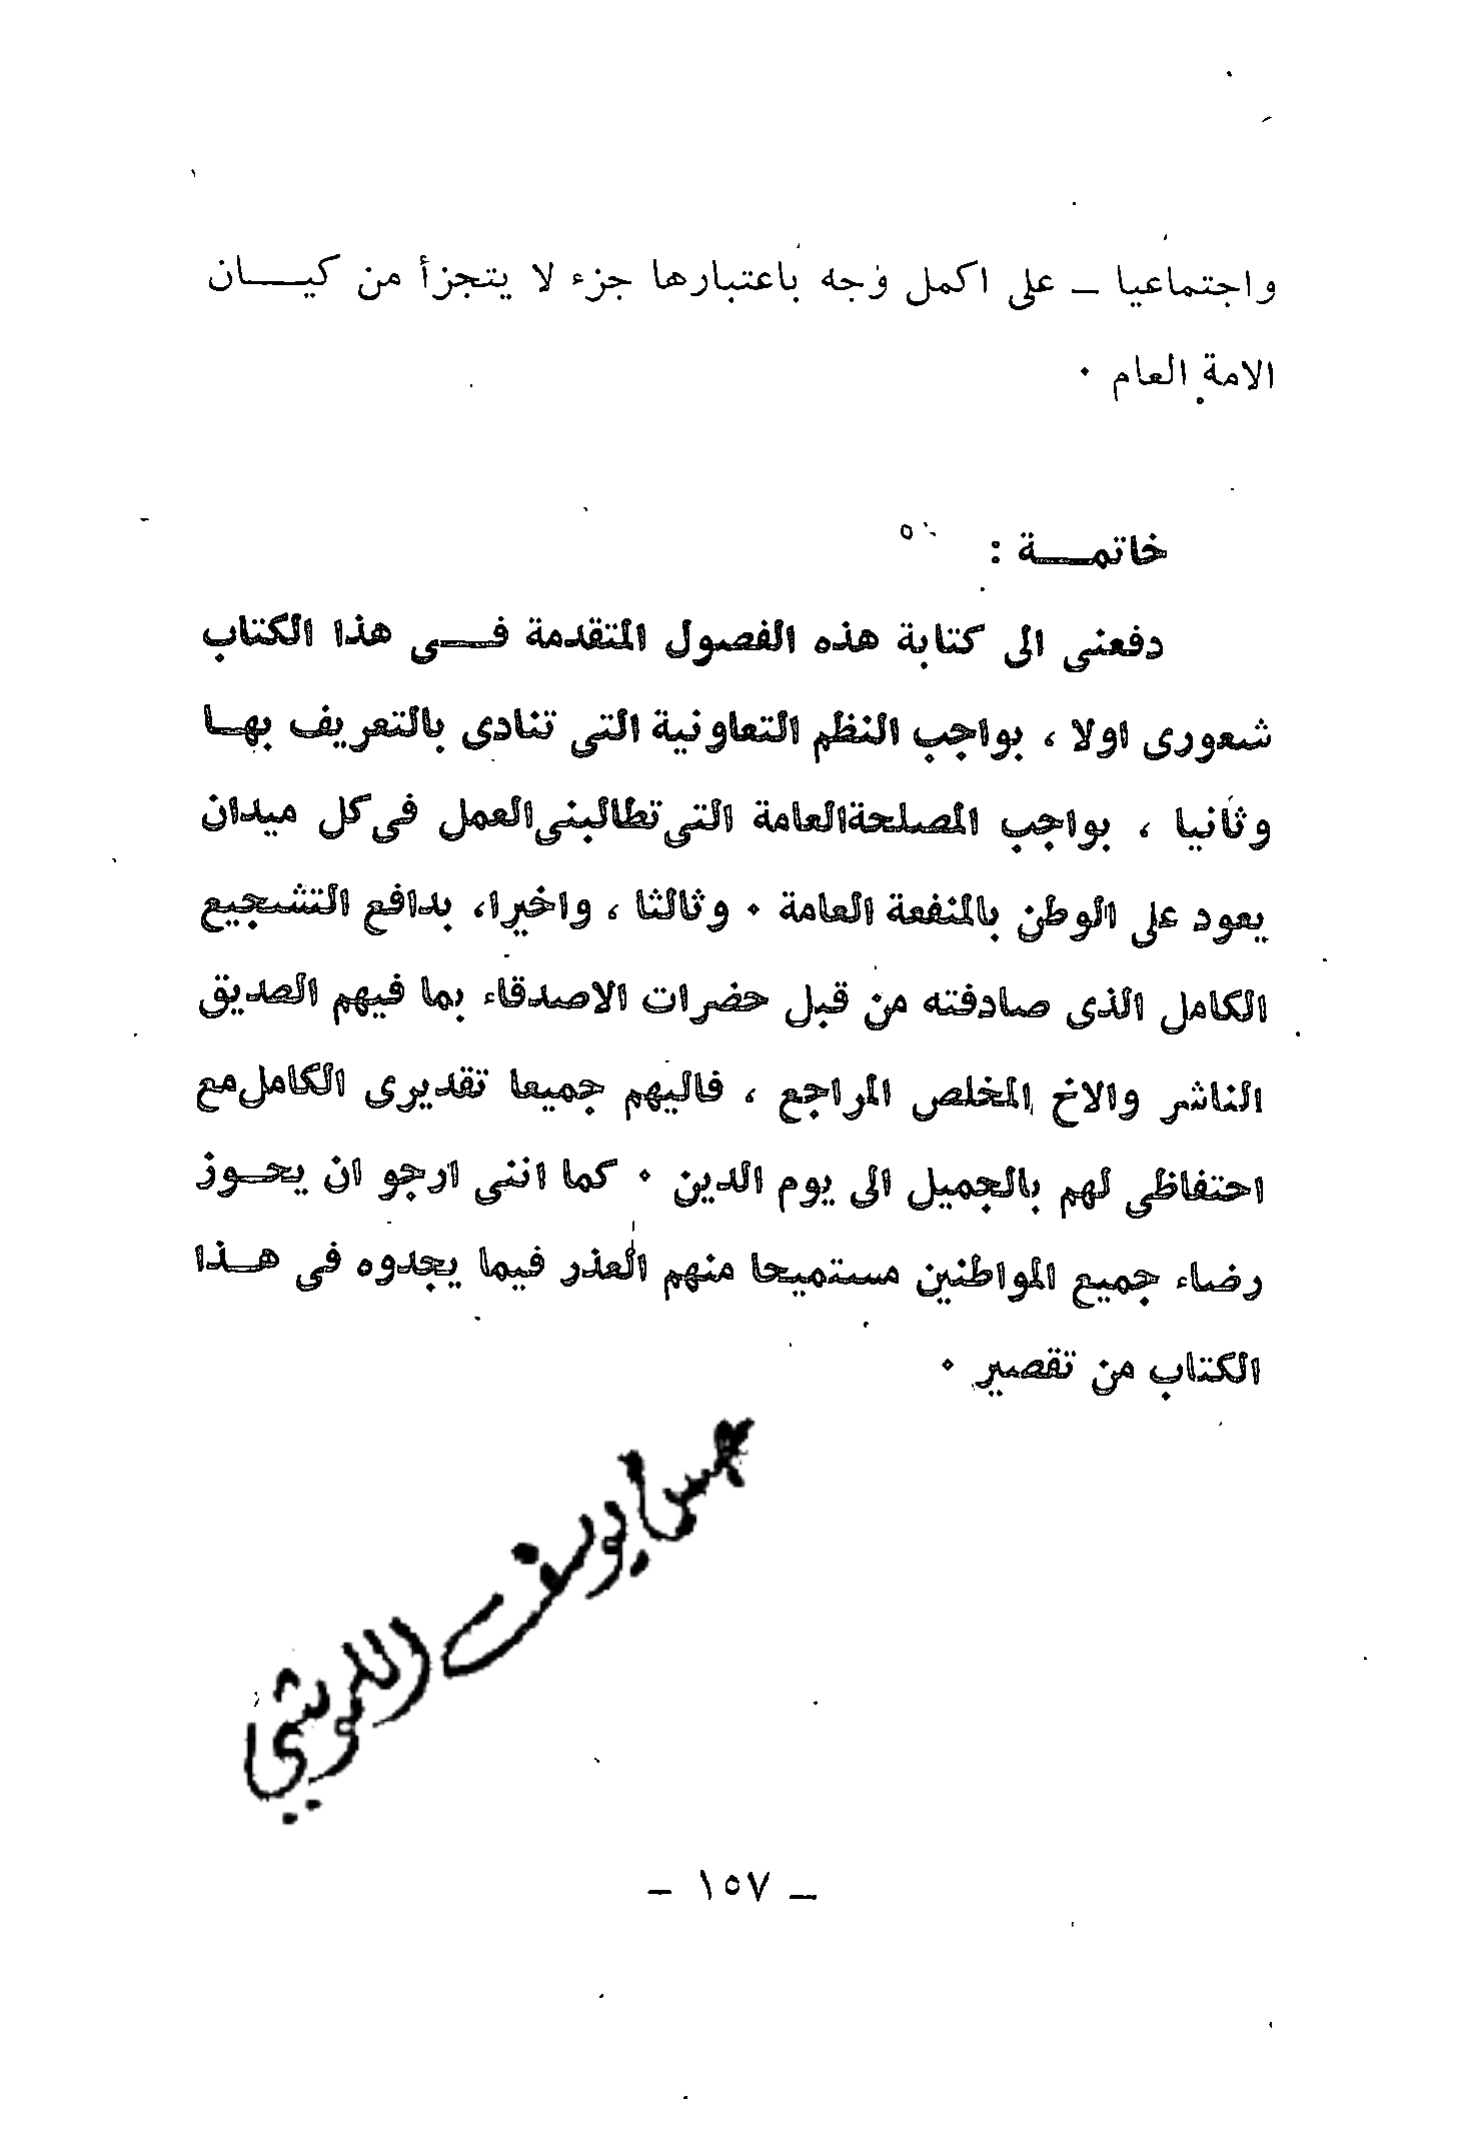 واجتماعيا ـ على اكمل وجه باعتبارها جزء لا يتجزأ من كيـــان
الامة العام ٠
خاتمـــة :
دفعنى الى كتابة هذه الفصول المتقدمة فـــى هذا الكتاب
شعورى اولا ، بواجب النظم التعاونية التى تنادى بالتعريف بهــا
وثانيا ، بواجب المصلحة العامة التى تطالبنى العمل فى كل ميدان
يعود على الوطن بالمنفعة العامة ٠ وثالثا ، واخيرا، بدافع التشجيع
الكامل الذى صادفته من قبل حضرات الاصدقاء بما فيهم الصديق
الناشر والاخ المخلص المراجع ، فاليهم جميعا تقديرى الكامل مع
احتفاظى لهم بالجميل الى يوم الدين ٠ كما اننى ارجو ان يحــوز
رضاء جميع المواطنين مستميحا منهم العذر فيما يجدوه فى هــذا
الكتاب من تقصير ٠
يوسف
ـ ١٥٧ ـ